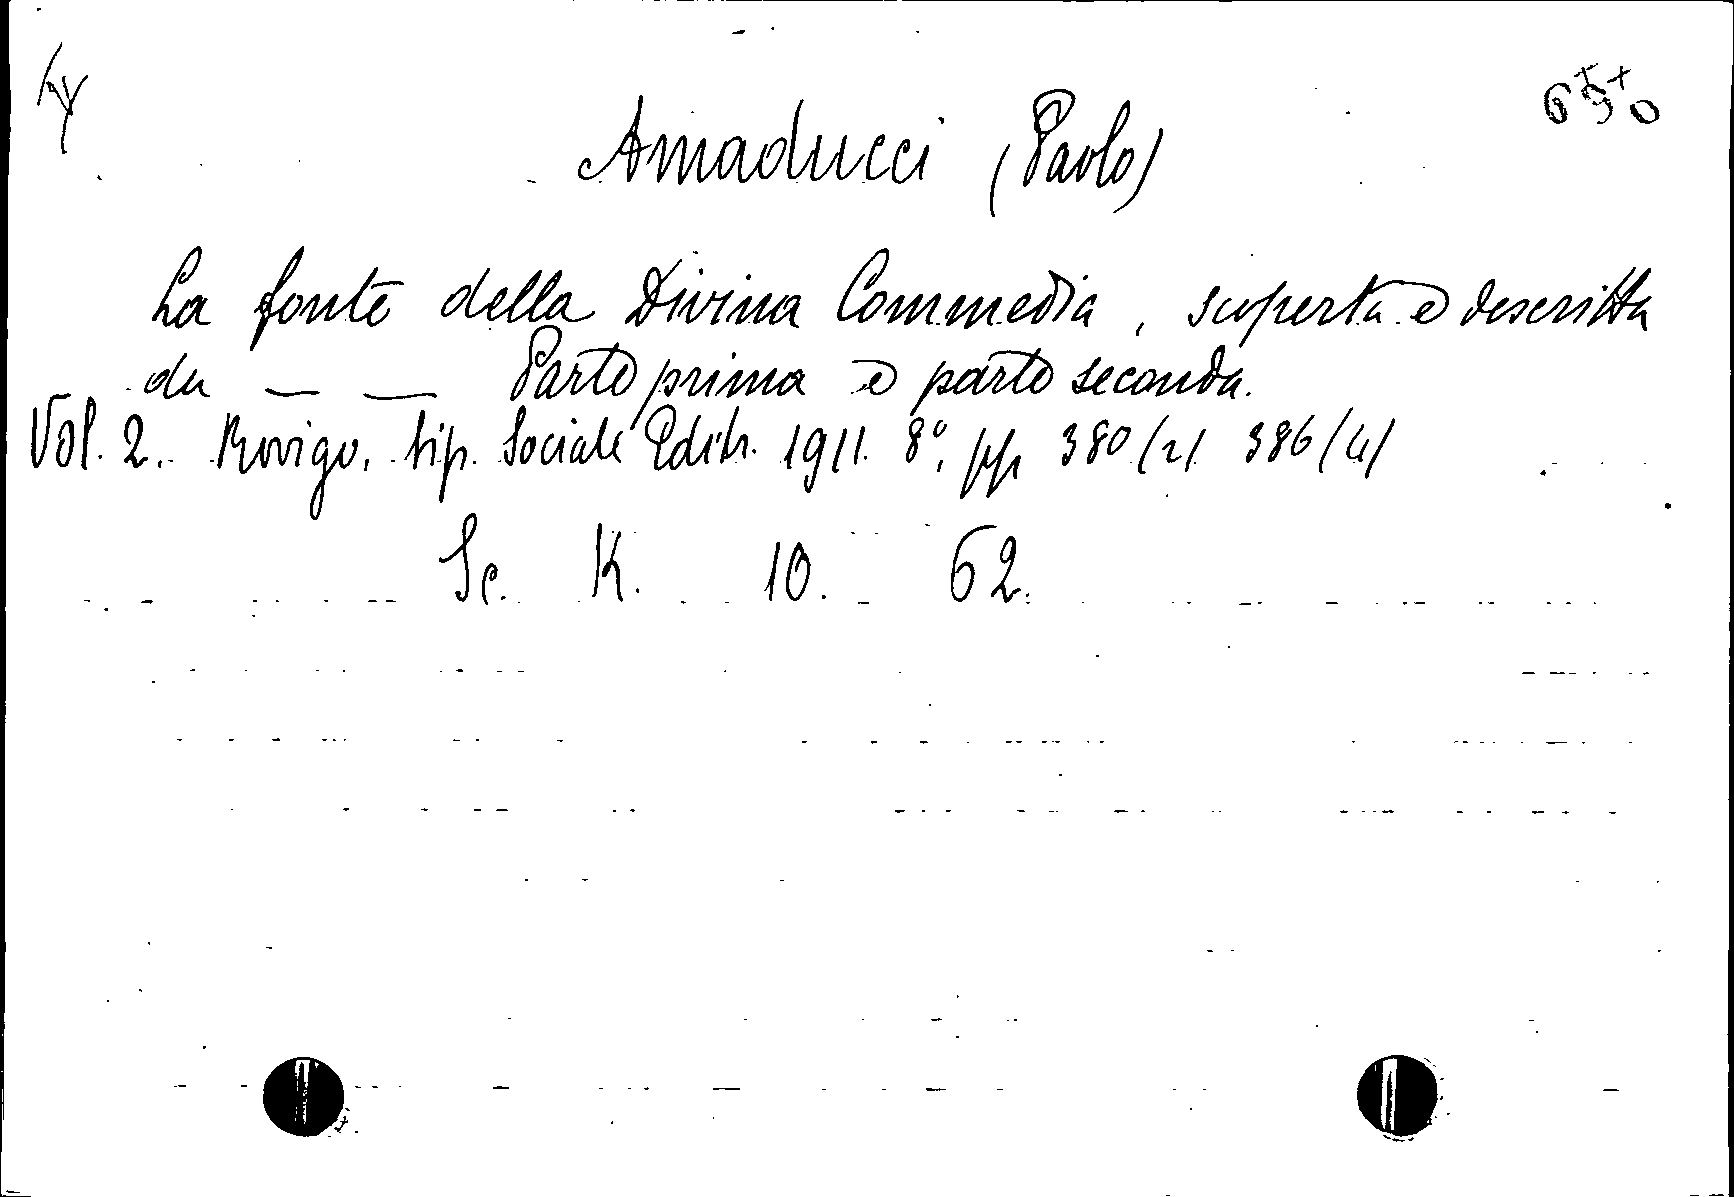 Amaducci (Paolo)
La fonte della Divina Commedia, scoperta e descritta
da — — Parte prima e parte seconda.
Vol. 2. Rovigo, tip. Sociale Editr. 1911. 8°, pp. 380 (2) 386 (4)
Sc. K. 10. 62.